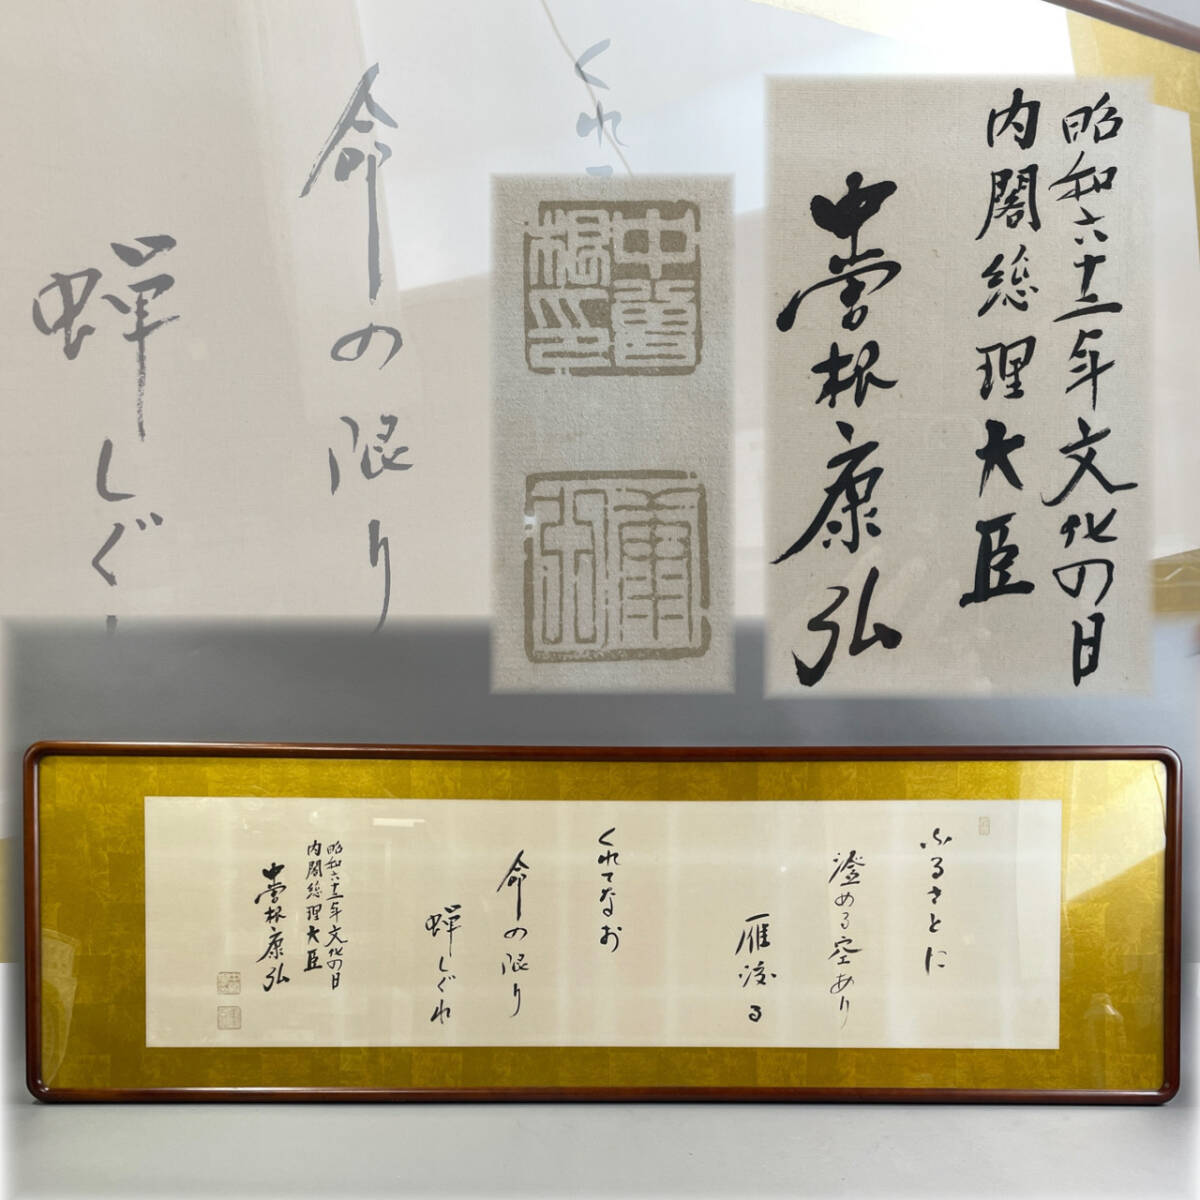 ふるさとに
澄める空あり
雁渡る
くれてなお
命の限り
蝉しぐれ
昭和六十二年文化の日
内閣総理大臣
中曽根康弘
昭和六十二年文化の日
内閣総理大臣
中曽根康弘
中曽
根印
康
弘
くれて
命の限り
蝉しぐ